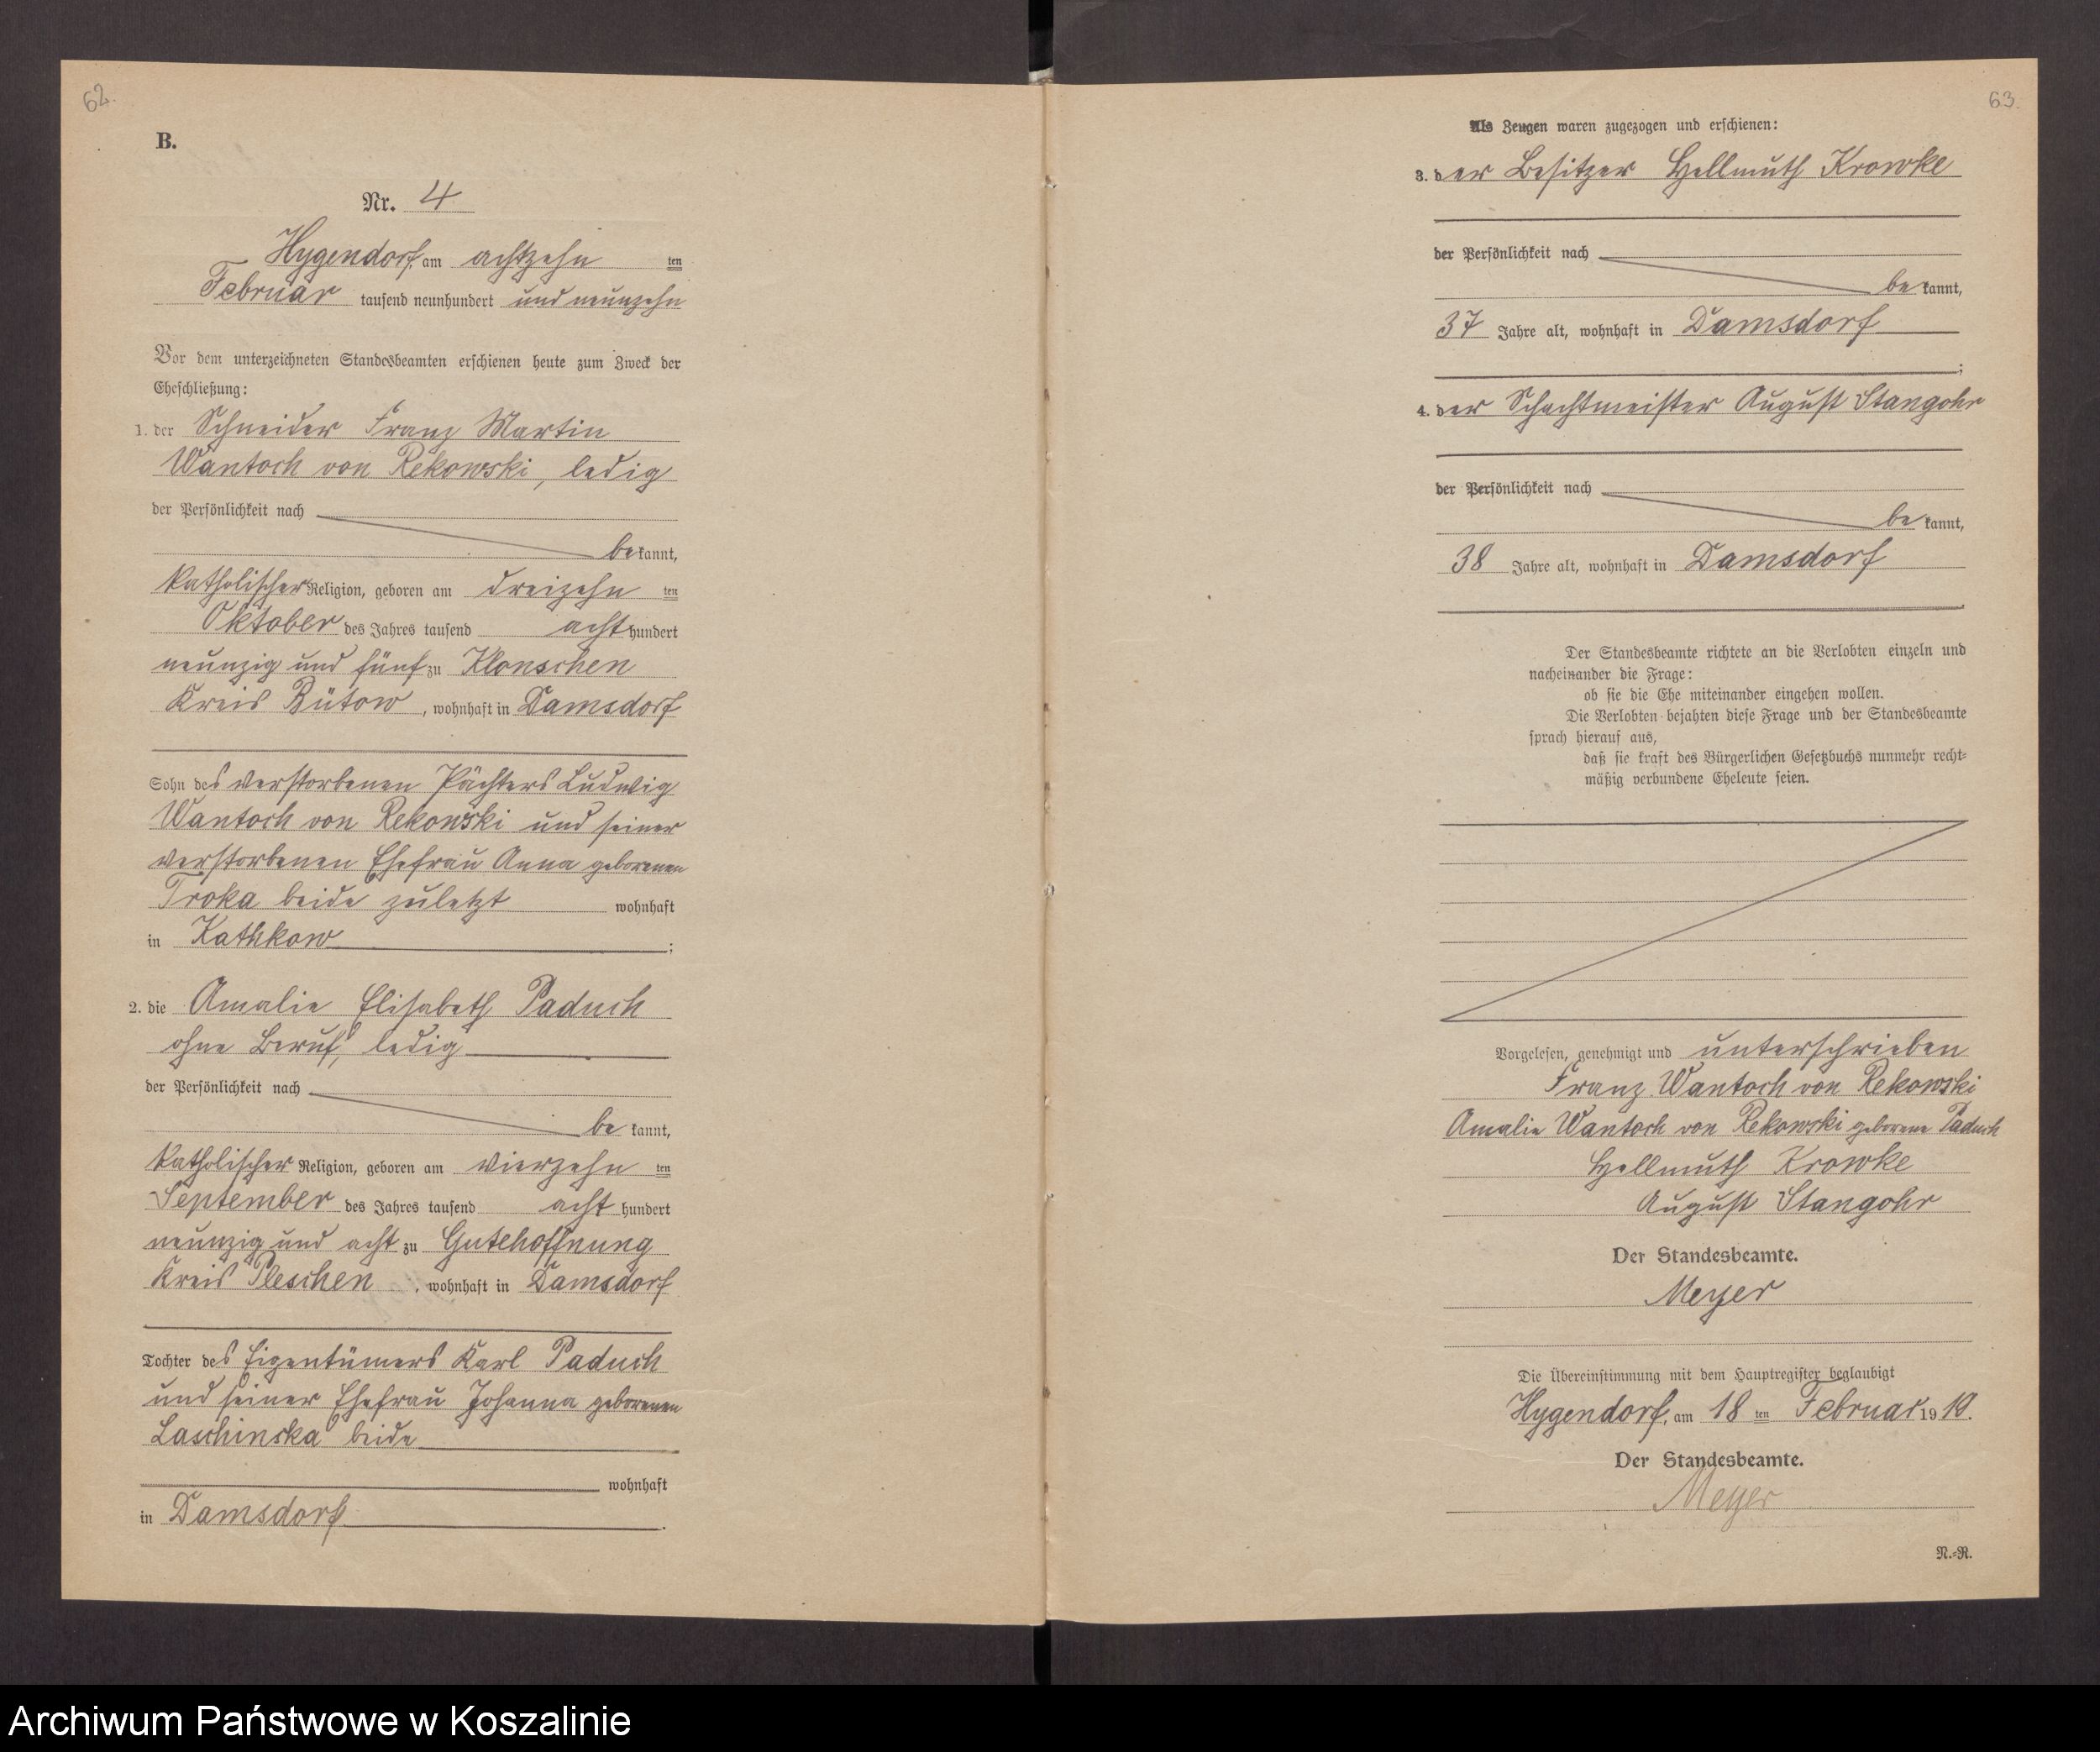 62.
B.
Nr. 4
Hygendorf, am achtzehn ten
Februar tausend neunhundert und neunzehn
Vor dem unterzeichneten Standesbeamten erschienen heute zum Zweck der
Eheschließung:
1. der Schneider Franz Martin
Wantoch von Rekowski, ledig
der Persönlichkeit nach
be kannt,
katholischer Religion, geboren am dreizehn ten
Oktober des Jahres tausend acht hundert
neunzig und fünf zu Klonschen
Kreis Bütow, wohnhaft in Damsdorf
Sohn des verstorbenen Pächters Ludwig
Wantoch von Rekowski und seiner
verstorbenen Ehefrau Anna geborenen
Troka beide zuletzt wohnhaft
in Kathkow;
2. die Amalie Elisabeth Paduch
ohne Beruf, ledig
der Persönlichkeit nach
be kannt,
katholischer Religion, geboren am vierzehn ten
September des Jahres tausend acht hundert
neunzig und acht zu Gutehoffnung
Kreis Pleschen, wohnhaft in Damsdorf
Tochter des Eigentümers Karl Paduch
und seiner Ehefrau Johanna geborenen
Laschinska beide
wohnhaft
in Damsdorf.
63.
Als Zeugen waren zugezogen und erschienen:
3. der Besitzer Hellmuth Krowke
der Persönlichkeit nach
be kannt,
37 Jahre alt, wohnhaft in Damsdorf
;
4. der Schachtmeister August Stangohr
der Persönlichkeit nach
be kannt,
38 Jahre alt, wohnhaft in Damsdorf
Der Standesbeamte richtete an die Verlobten einzeln und
nacheinander die Frage:
ob sie die Ehe miteinander eingehen wollen.
Die Verlobten bejahten diese Frage und der Standesbeamte
sprach hierauf aus,
daß sie kraft des Bürgerlichen Gesetzbuchs nunmehr recht-
mäßig verbundene Eheleute seien.
Vorgelesen, genehmigt und unterschrieben
Franz Wantoch von Rekowski
Amalie Wantoch von Rekowski geborene Paduch
Hellmuth Krowke
August Stangohr
Der Standesbeamte.
Meyer
Die Übereinstimmung mit dem Hauptregister beglaubigt
Hygendorf, am 18 ten Februar 19 19.
Der Standesbeamte.
Meyer
N.-R.
Archiwum Państwowe w Koszalinie